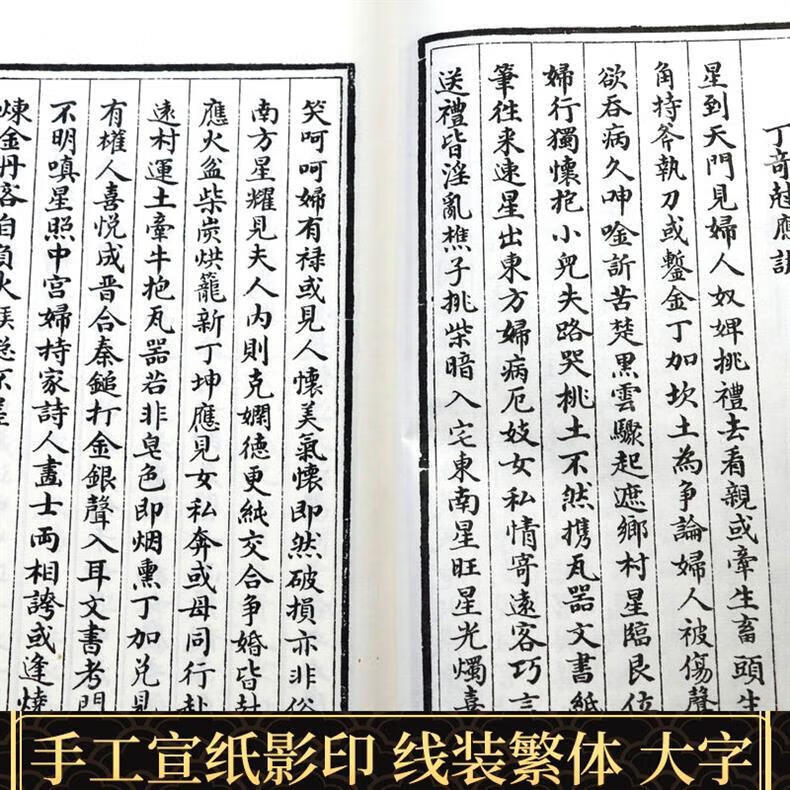 丁奇尅應訣
星到天門見婦人奴婢挑禮去看親或牽生畜頭生
角持斧執刀或鏨金丁加坎土為争論婦人被傷聲
欲吞病久呻唫訴苦楚黑雲驟起遮鄉村星臨艮位
婦行獨懷抱小兒失路哭桃土不然携瓦器文書紙
筆往来速星出東方婦病厄妓女私情寄遠客巧言
送禮皆淫亂樵子挑柴暗入宅東南星旺星光燭喜
笑呵呵婦有禄或見人懷美氣懷即然破損亦非俗
南方星耀見夫人内則克嫻德更純交合争婚皆
應火盆柴炭烘籠新丁坤應見女私奔或母同行赴
遠村運土牽牛抱瓦器若非皂色即烟熏丁加兑見
有權人喜悦成晋合秦鎚打金銀聲入耳文書考門
不明嗔星照中宫婦持家詩人畫士両相誇或逢燒
煉金丹客
手工宣纸影印 线装繁体 大字